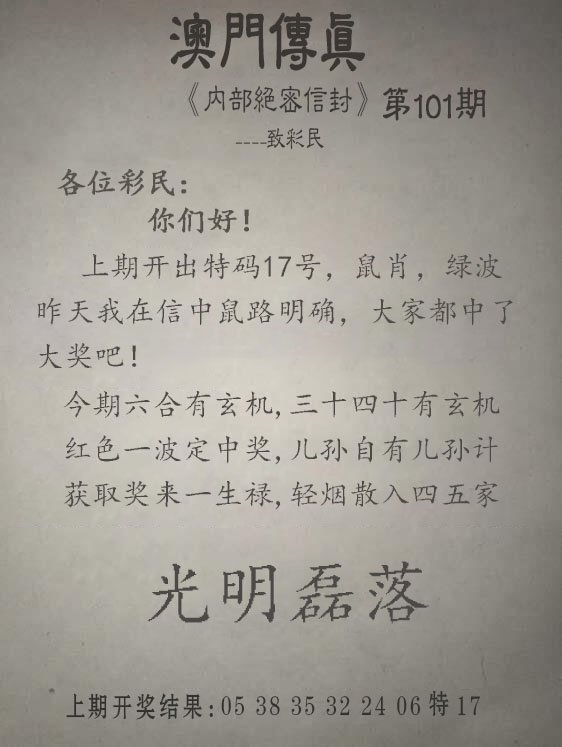 澳門傳真
《内部絕密信封》第101期
----致彩民
各位彩民：
你们好！
上期开出特码17号，鼠肖，绿波
昨天我在信中鼠路明确，大家都中了
大奖吧！
今期六合有玄机,三十四十有玄机
红色一波定中奖,儿孙自有儿孙计
获取奖来一生禄,轻烟散入四五家
光明磊落
上期开奖结果:05 38 35 32 24 06 特 17